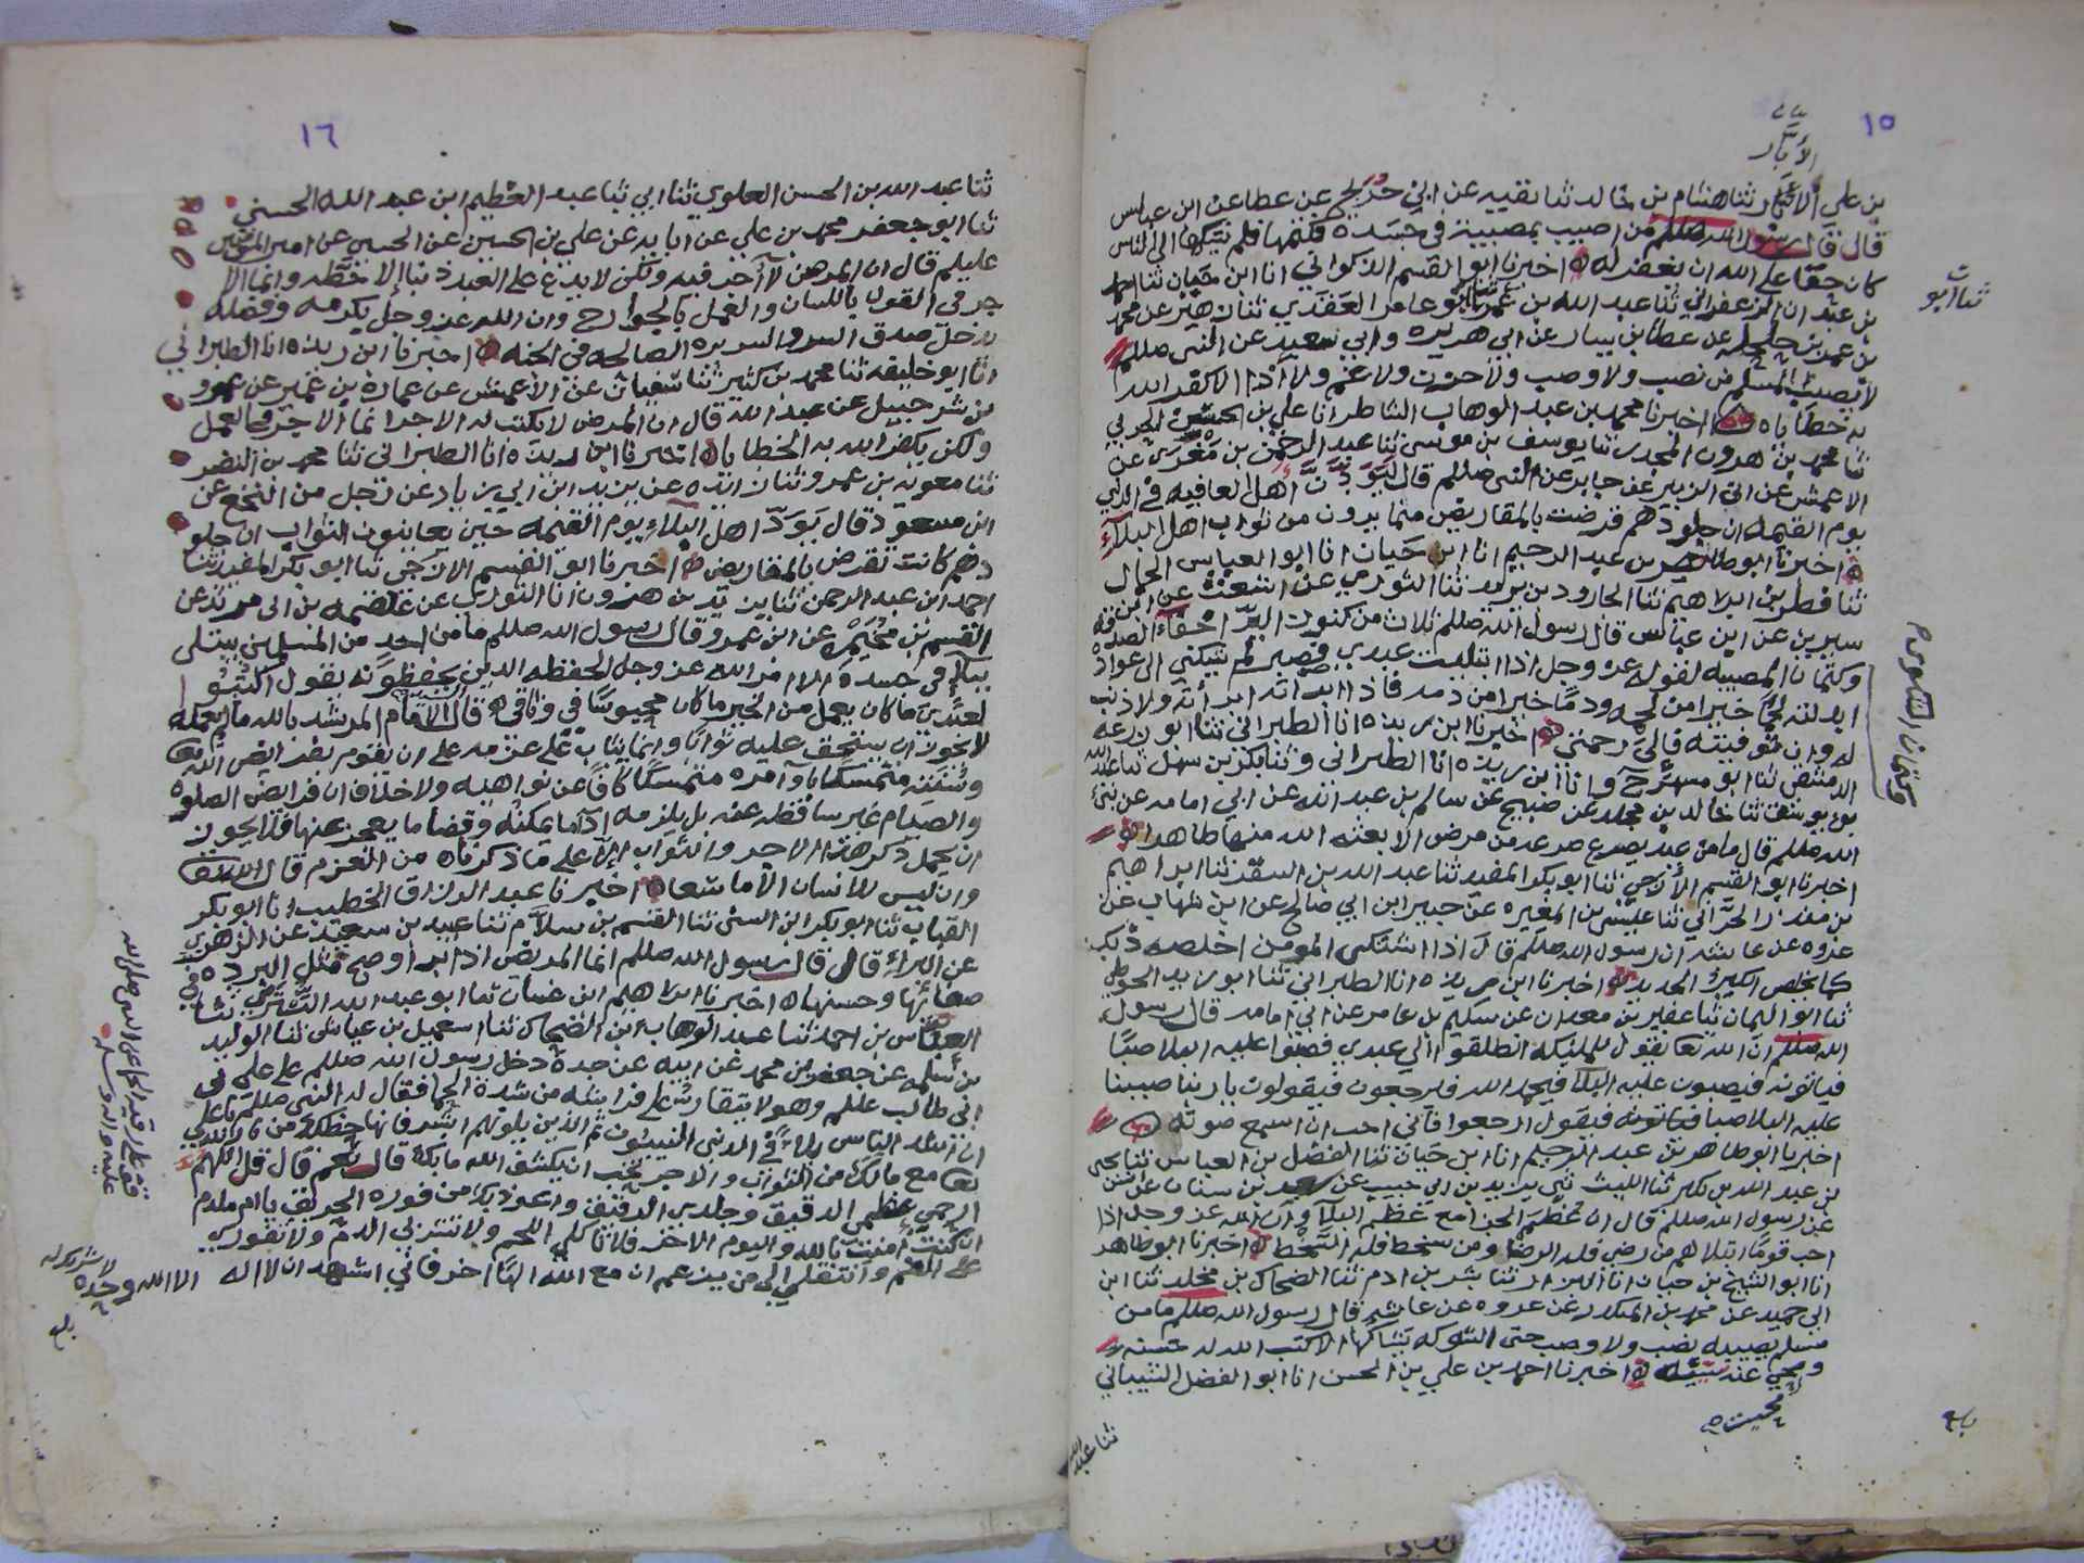 ١٥
الأبَّار
بن علي الأبار ثنا هشام بن خالد ثنا بقيه عن ابن جريج عن عطا عن ابن عباس
قال قال رسول الله صللم من اصيب بمصيبة في جسده فكتمها فلم يشكها الى الناس
كان حقا على الله ان يغفر له ه اخبرنا ابو القسم الذكواني انا ابن حيان ثنا
بن عبد ان الزعفراني ثنا عبد الله بن عمر ثنا ابو عامر العقدي ثنا زهير عن محمد
ثنا ابو
بن عمرو بن حلحله عن عطا بن يسار عن ابي هريره وابي سعيد عن النبي صللم
لا يصيب المسلم من نصب ولا وصب ولا حزن ولا غم ولا أذا الا كفر الله
به خطاياه ه اخبرنا محمد بن عبد الوهاب الشاطر انا علي بن الحربي
ثنا محمد بن هرون المجدر ثنا يوسف بن موسى ثنا عبد الرحمن بن مغرى عن
الاعمش عن ابي الزبير عن جابر عن النبي صللم قال ليودن أهل العافيه في الدني
يوم القيمه ان جلودهم قرضت بالمقاريض مما يرون من ثواب اهل البلآء
ه اخبرنا ابو طاهر بن عبد الرحيم انا ابن حيان انا ابو العباس الجمال
ثنا قطر بن ابراهيم ثنا الجارود بن يزيد ثنا الثوري عن اشعث عن ابن
سيرين عن ابن عباس قال رسول الله صللم ثلاث من كنوز البر اخفاء الصدقه
وكتمان الشكوى م
وكتمان المصيبه لقوله عز وجل اذا ابتليت عبدي فصبر لم يشكني الى عواده
ابدلته لحما خيرا من لحمه ودما خيرا من دمه فاذا ابراته ابرأته ولا ذنب
له وان توفيته فالى رحمتي ه اخبرنا ابن ريذه انا الطبراني ثنا ابو زرعه
الدمشقي ثنا ابو مسهر ح وانا ابن ريذه انا الطبراني وثنا بكر بن سهل ثنا عبد الله
بن يوسف ثنا خالد بن عن صبيح عن سالم بن عبد الله عن ابي امامه عن
الله صللم قال ما من عبد يصرع صرعه من مرض الا بعثه الله منها طاهرا
اخبرنا ابو القسم الأزجي ثنا ابو بكر المفيد ثنا عبد الله بن السقر ثنا ابراهيم
بن منذر الحزامي ثنا عيسى بن المغيره عن جبير ابن ابي صالح عن ابن شهاب عن
عروه عن عائشه ان رسول الله صللم قال اذا اشتكى المومن اخلصه ذلك
كما يخلص الكير الحديد ه اخبرنا ابن ريذه انا الطبراني ثنا ابو زيد الحوطي
ثنا ابو اليمان ثنا عفير بن معدان عن سليم بن عامر عن ابي امامه قال رسول
الله صللم ان الله تعا يقول للمليكه انطلقوا الى عبدي فصبوا عليه البلا صبا
فياتونه فيصبون عليه البلا فيحمد الله فيرجعون فيقولون يا ربنا صببنا
عليه البلا صبا فيقول ارجعوا فاني احب ان اسمع صوته ه
اخبرنا ابو طاهر بن عبد الرحيم انا ابن حيان ثنا الفضل بن العباس ثنا يحيى
بن عبد الله بن بكير ثنا الليث يزيد بن ابي حبيب عن سعد بن سنان عن انس
عن رسول الله صللم قال ان عظم الجزا مع عظم البلا وان الله عز وجل اذا
احب قوما ابتلاهم من رضي فله الرضا ومن سخط فله السخط ه اخبرنا ابو طاهر
انا ابو الشيخ بن حيان انا ثنا بشر بن ادم ثنا الضحاك بن مخلد ثنا ابن
ابي حميد عن محمد بن المنكدر عن عروه عن عائشه قال رسول الله صللم ما من
مسلم يصيبه نصب ولا وصب حتى الشوكه يشاكها الا كتب الله له حسنه
ومحي عنه سيئه ه اخبرنا احمد بن علي بن الحسن انا ابو الفضل الشيباني
ومحيت
ثنا عبد الله
بلغ
١٦
ثنا عبد الله بن الحسن العلوي ثنا ابي ثنا عبد العظيم ابن عبد الله الحسني
ثنا ابو جعفر محمد بن علي عن ابايه عن علي بن الحسين عن الحسين عن امير المؤمنين
عليلم قال ان المرض لا أجر فيه ولكن لا يدع على العبد ذنبا الا حطه وانما الا
جر في القول باللسان والعمل بالجوارح وان الله عز وجل بكرمه وفضله
يدخل صدق السر والسريره الصالحه في الجنه ه اخبرنا ابن ريذه انا الطبراني
انا ابو خليفه ثنا محمد بن كثير ثنا سفيان عن الاعمش عن عمارة بن عمير عن عمرو
بن شرحبيل عن عبد الله قال ان المرض لا يكتب له الاجر انما الاجر في العمل
ولكن يكفر الله به الخطايا ه اخبرنا ابن ريذه انا الطبراني ثنا محمد بن النضر
ثنا معويه بن عمرو ثنا زائده عن يزيد ابن ابي زياد عن رجل من النخع عن
ابن مسعود قال يود اهل البلاء يوم القيمه حين يعاينون الثواب ان جلو
دهم كانت تقرض بالمقاريض ه اخبرنا ابو القسم الازجي ثنا ابو بكر المفيد ثنا
احمد ابن عبد الرحمن ثنا يزيد بن هرون انا الثوري عن علقمه بن مرثد عن
القسم بن مخيمره عن ابن عمرو قال رسول الله صللم ما من احد من المسلمين يبتلى
ببلا في جسده الا امر الله عز وجل الحفظه الذين يحفظونه يقول اكتبوا
لعبدي ما كان يعمل من الخير ما كان محبوسا في وثاقي ه قال السيد الامام المرشد بالله ما لم يعمله
لا يجوز ان يستحق عليه ثوابا وانما يثاب على عزمه على ان يقوم بفرايض الله
وسننه متمسكا باوامره متمسكا كافا عن نواهيه ولا خلاف ان فرايض الصلوه
والصيام غير ساقطه عنه بل يلزمه ادآ ما يمكنه وقضا ما يعجز عنها فلا يجوز
ان يحمل ذكر هذا الاجر والثواب الا على ما ذكرناه من العزم قال الله تعا
وان ليس للانسان الا ما سعا ه اخبرنا عبد الرزاق الخطيب انا ابو بكر
القباب ثنا ابو بكر ثنا القسم بن سلام ثنا عبيد بن سعيد عن الزهري
عن البراء قال قال رسول الله صللم انما المريض اذا برا وصح مثل البرده في
صفائها وحسنها ه اخبرنا ابراهيم ابن غسان ثنا ابو عبد الله ثنا
العباس بن احمد ثنا عبد الوهاب بن الضحاك ثنا اسمعيل بن عياش ثنا الوليد
بن سلمه عن جعفر بن محمد عن ابيه عن جده دخل رسول الله صللم على علي بن
ابي طالب عللم وهو لا يتقار على فراشه من شدة الحمى فقال له النبي صللم يا علي
ان اشد الناس بلاءً في الدنى النبييون ثم الذين يلونهم ابشر فانها حظك من
مع مالك من الثواب والاجر تحب ان يكشف الله ما بك قال نعم قال قل اللهم
ارحم عظمي الدقيق وجلدي الرقيق واعوذ بك من فورة الحريق يا ام ملدم
ان كنت امنت بالله واليوم الاخر فلا تاكلي اللحم ولا تشربي الدم ولا تفوري
على الفم وانتقلي الى من يزعم ان مع الله الها اخر فاني اشهد ان لا اله الا الله وحده
لا شريك له
بلغ
عن النبي صلى الله
عليه واله وسلم